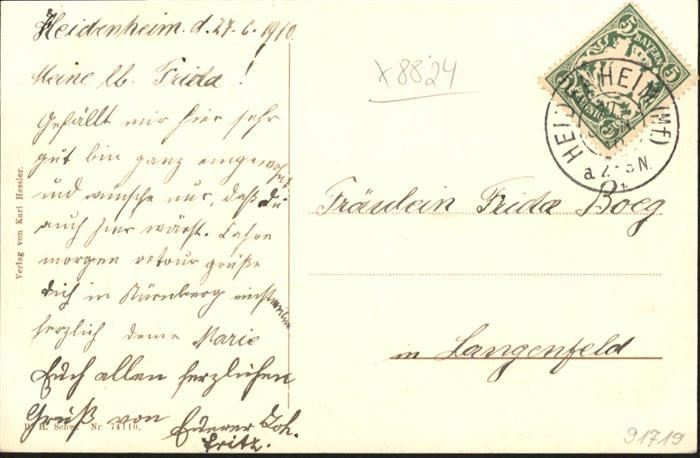 Heidenheim. d. 27.6.1910
Meine lb. Frida!
Gefällt mir hier sehr
gut bin ganz eingewohnt
und wünsche nur, daß du
auch hier wärst. Fahre
morgen retour grüße
dich in Nürnberg einstweilen
herzlich deine Marie
Euch allen herzlichen
Gruß von Joh.
Fritz.
Verlag von Karl Hessler.
Nr. 74110.
x8824
5 BAYERN 5
HEIDENHEIM (Mf.)
Fräulein Frida Boeg
in Langenfeld
91719